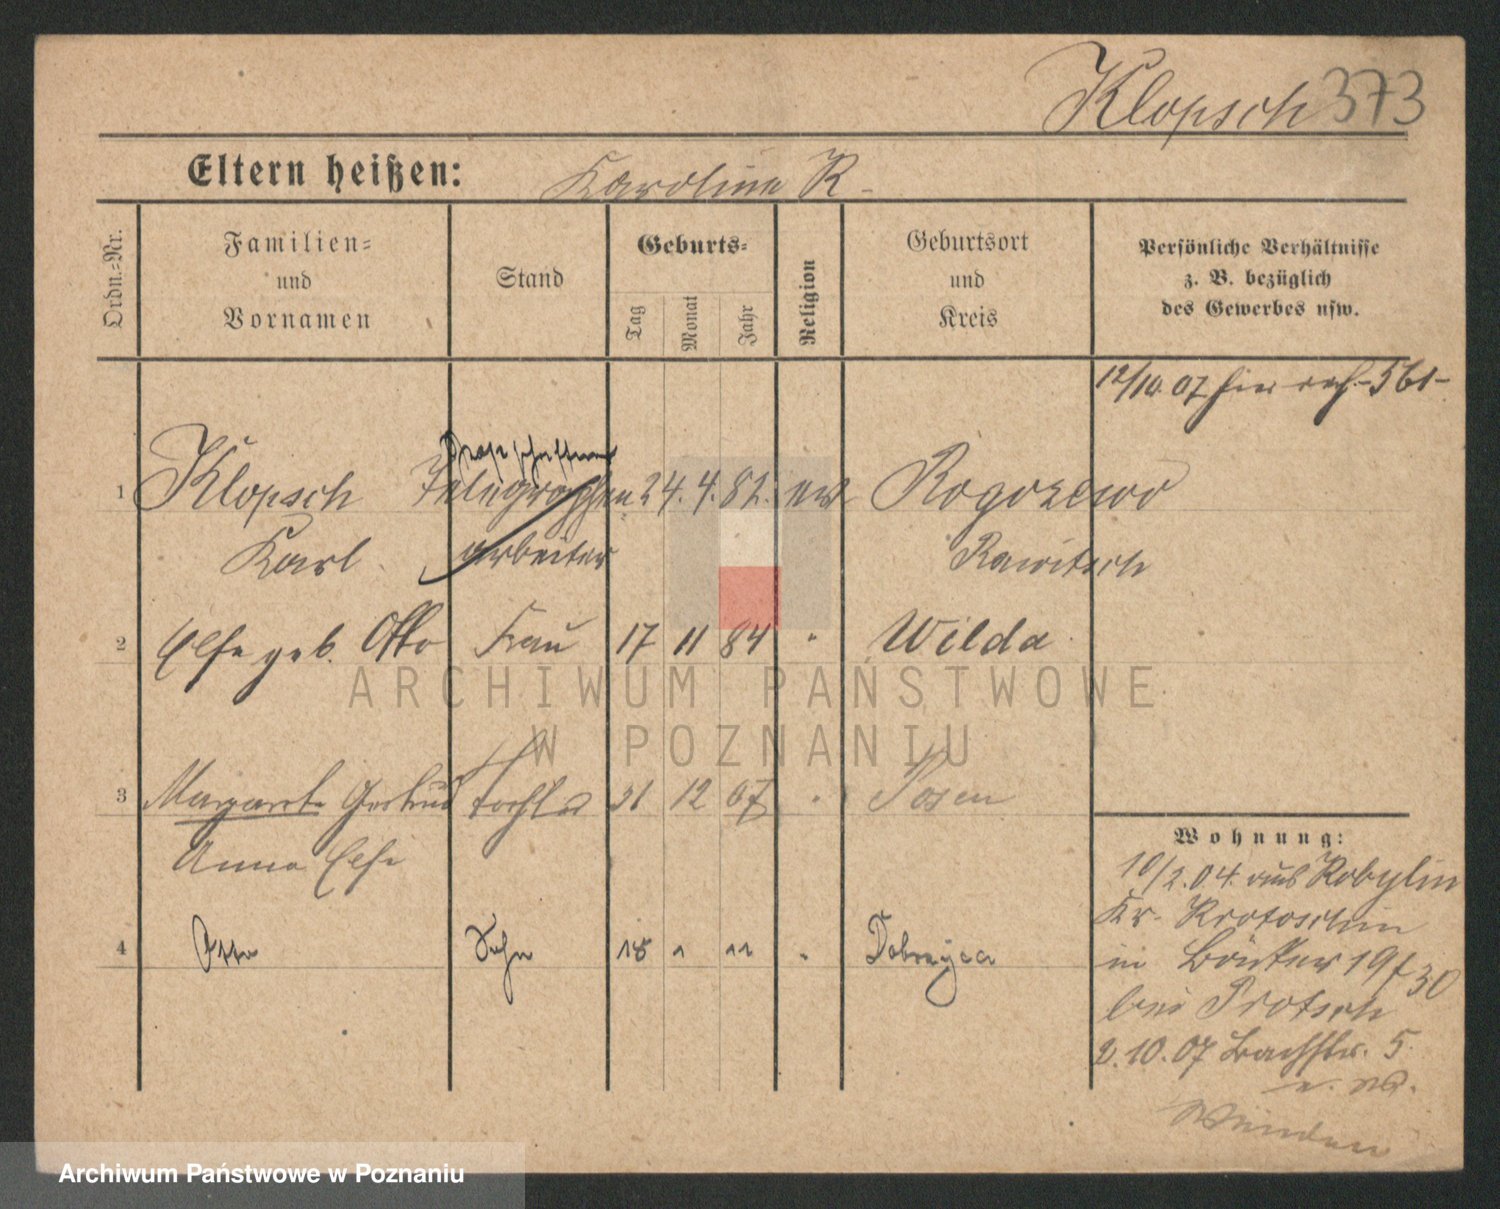 Klopsch 373
Eltern heißen: Karoline K.
Ordn.=Nr.
Familien=
und
Vornamen
Stand
Geburts=
Tag
Monat
Jahr
Religion
Geburtsort
und
Kreis
Persönliche Verhältnisse
z. B. bezüglich
des Gewerbes usw.
12/10. 07 hier -561-
Postschaffner
1 Klopsch Telegraphen 24. 4. 82. ev Rogozewo
Karl arbeiter Rawitsch
2 Else geb. Otto Frau 17 11 84 " Wilda
ARCHIWUM PAŃSTWOWE
W POZNANIU
3 Margarete Gertrud Tochter 31 12 07 " Posen
Anna Else
4 Otto Sohn 18 " " " Dobrzyca
Wohnung:
10/2. 04. aus Kobylin
Kr. Krotoschin
in Bänker 19/30
bei Protsch
2. 10. 07 Bachstr. 5
Archiwum Państwowe w Poznaniu